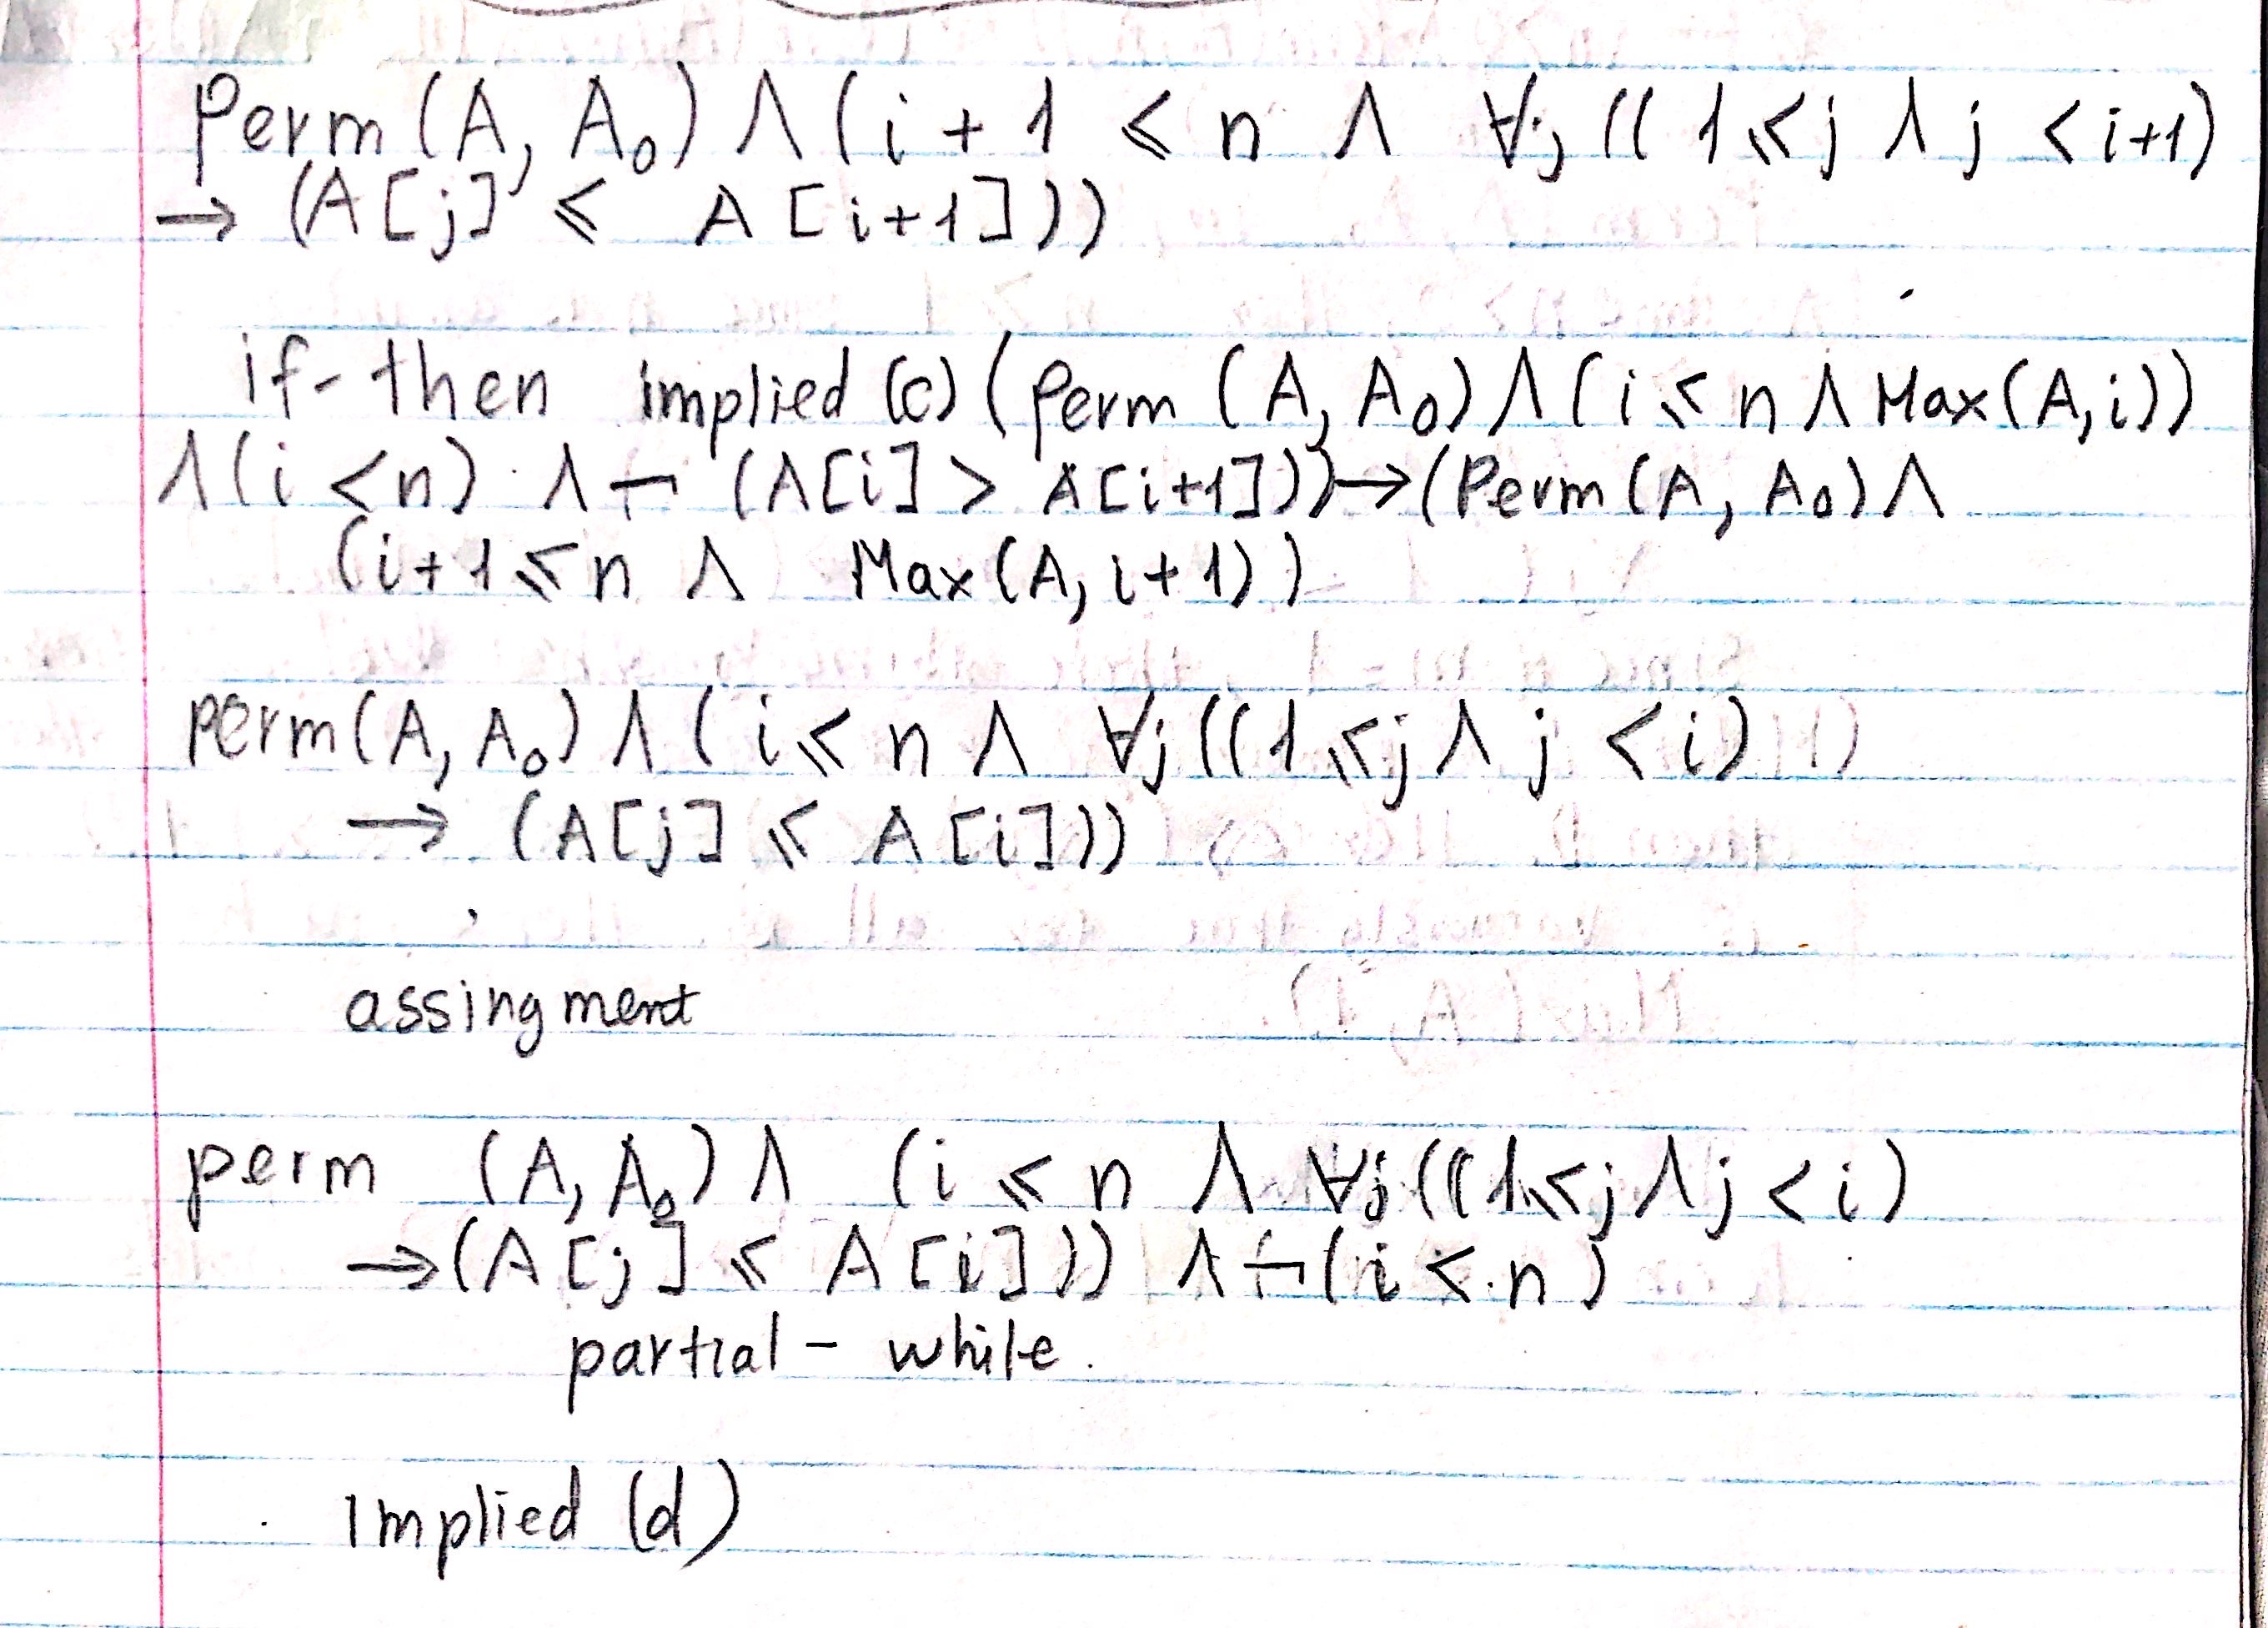 Perm (A, A₀) ∧ (i + 1 ≤ n ∧ ∀j (( 1 ≤ j ∧ j < i+1)
→ (A [j] ≤ A [i+1]))
if-then implied (c) (Perm (A, A₀) ∧ (i ≤ n ∧ Max(A, i))
∧ (i < n) ∧ ¬ (A[i] > A[i+1])) → (Perm (A, A₀) ∧
(i+1 ≤ n ∧ Max (A, i+1))
perm (A, A₀) ∧ ( i ≤ n ∧ ∀j ((1 ≤ j ∧ j < i)
→ (A[j] ≤ A [i]))
assingment
perm (A, A₀) ∧ (i ≤ n ∧ ∀j ((1 ≤ j ∧ j < i)
→ (A [j] ≤ A [i])) ∧ ¬ (i < n)
partial - while.
Implied (d)